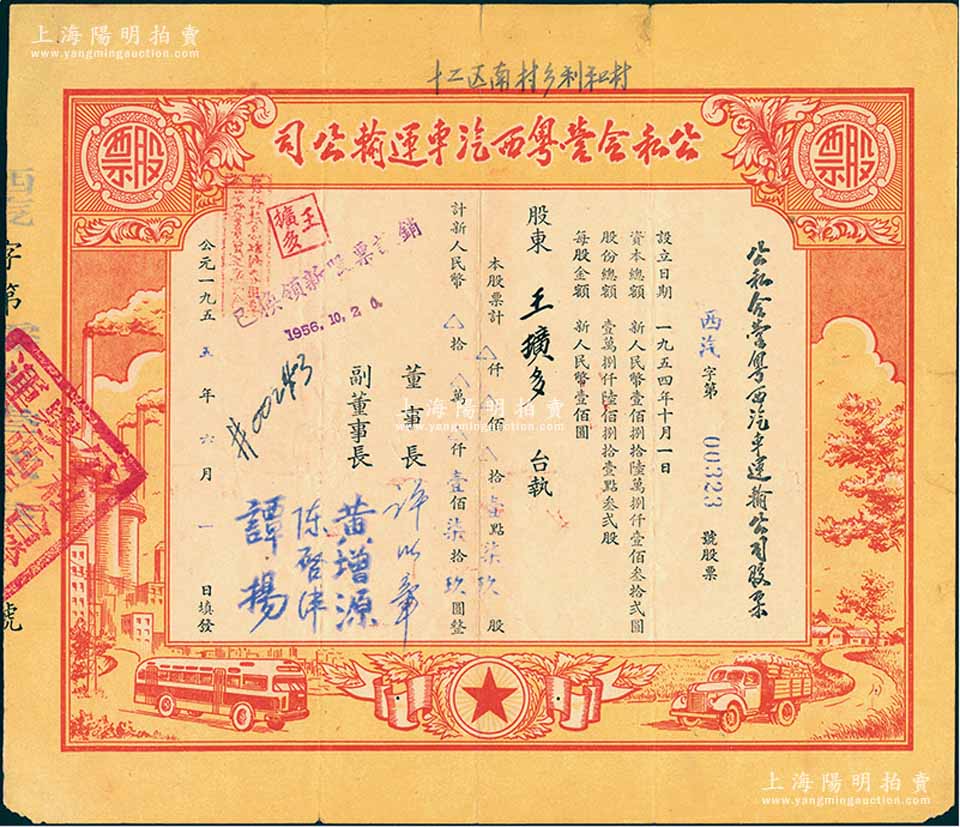 上海陽明拍賣
www.yangmingauction.com
十二区南村乡利和村
公私合營粤西汽車運輸公司
股票
股票
公私合營粤西汽車運輸公司股票
西汽 字第 00323 號股票
設立日期 一九五四年十月一日
資本總額 新人民幣壹佰捌拾陸萬捌仟壹佰叁拾弍圓
股份總額 壹萬捌仟陸佰捌拾壹點叁弍股
每股金額 新人民幣壹佰圓
股東 王擴多 台執
本股票計 仟 佰 拾壹點柒玖 股
計新人民幣 拾 萬 仟壹佰柒拾玖圓整
董事長 許以章
副董事長 黄增源
陈啓津
譚揚
#00243
已换領新股票註銷
1956.10.20.
王擴多
公元一九五五年六月一日填發
西汽 字第
號
上海陽明拍賣
www.yangmingauction.com
上海陽明拍賣
www.yangmingauction.com